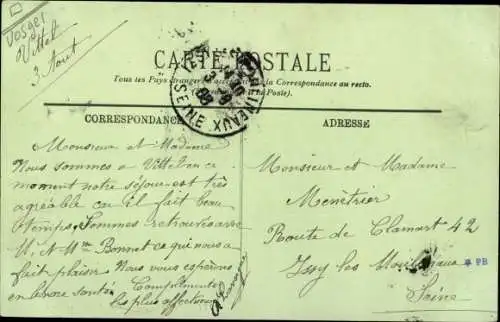 Vosges
Vittel
3 Aout
CARTE POSTALE
Tous les Pays étrangers la Correspondance au recto.
à la Poste).
CORRESPONDANCE
ADRESSE
MOULINEAUX
SEINE
Monsieur et Madame
Nous sommes a Vittel en ce
moment notre séjour est très
agréable car il fait beau
temps, Sommes retrouvés avec
M. & Mme Bonnet ce qui nous a
fait plaisir Nous vous espérons
en bonne santé. Compliments
les plus affectueux
Monsieur et Madame
Menêtrier
Route de Clamart 42
Issy les Moulineaux
Seine
PB